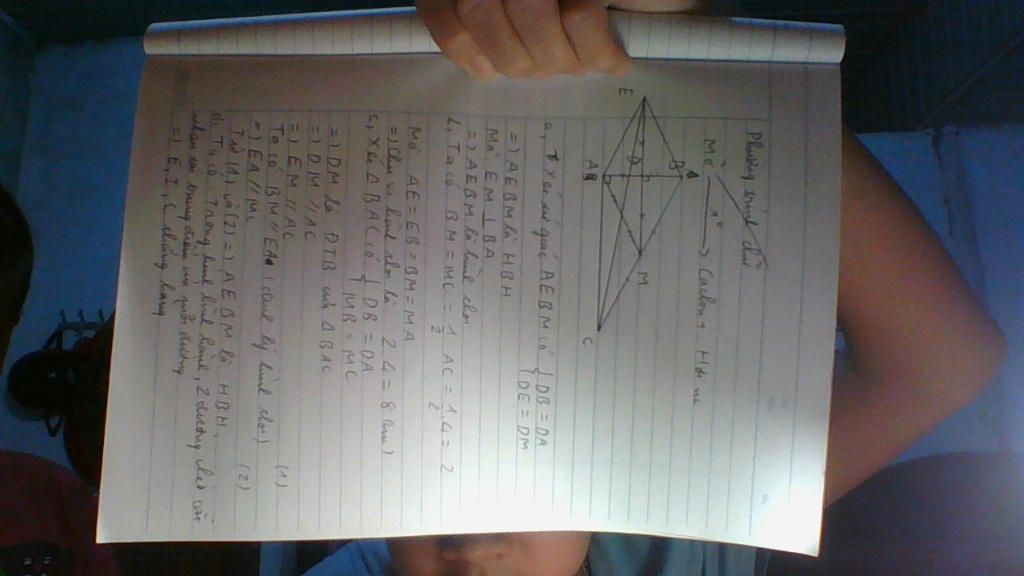 Phương trình chữ
Mỡ t° → Cacbon + Hơi nước
E
A
D
B
M
C
a, Xét tứ giác AEBM có { DB = DA
DE = DM
=) AEBM là HBH
Mà EM ⊥ BA
=) AEBM là hình thoi
b, Ta có BM = MC = 1/2 AC = 1/2 . 4 = 2
Mà AE = EB = BM = MA
=) Chu vi hình thoi là 2.4 = 8 (cm)
c, Xét Δ BAC có { DB = DA
MB = MC
=) DM là ĐTB của Δ BAC
=) DM // AC
=) EM // AC (1)
Ta có BM // EA (hình thoi)
=) EA // MC (2)
Từ (1) và (2) =) AEBM là HBH
d, Ta có Trong hình bình hành, 2 đường chéo cắt
nhau tại trung điểm của mỗi đường
=) E, I, C thẳng hàng